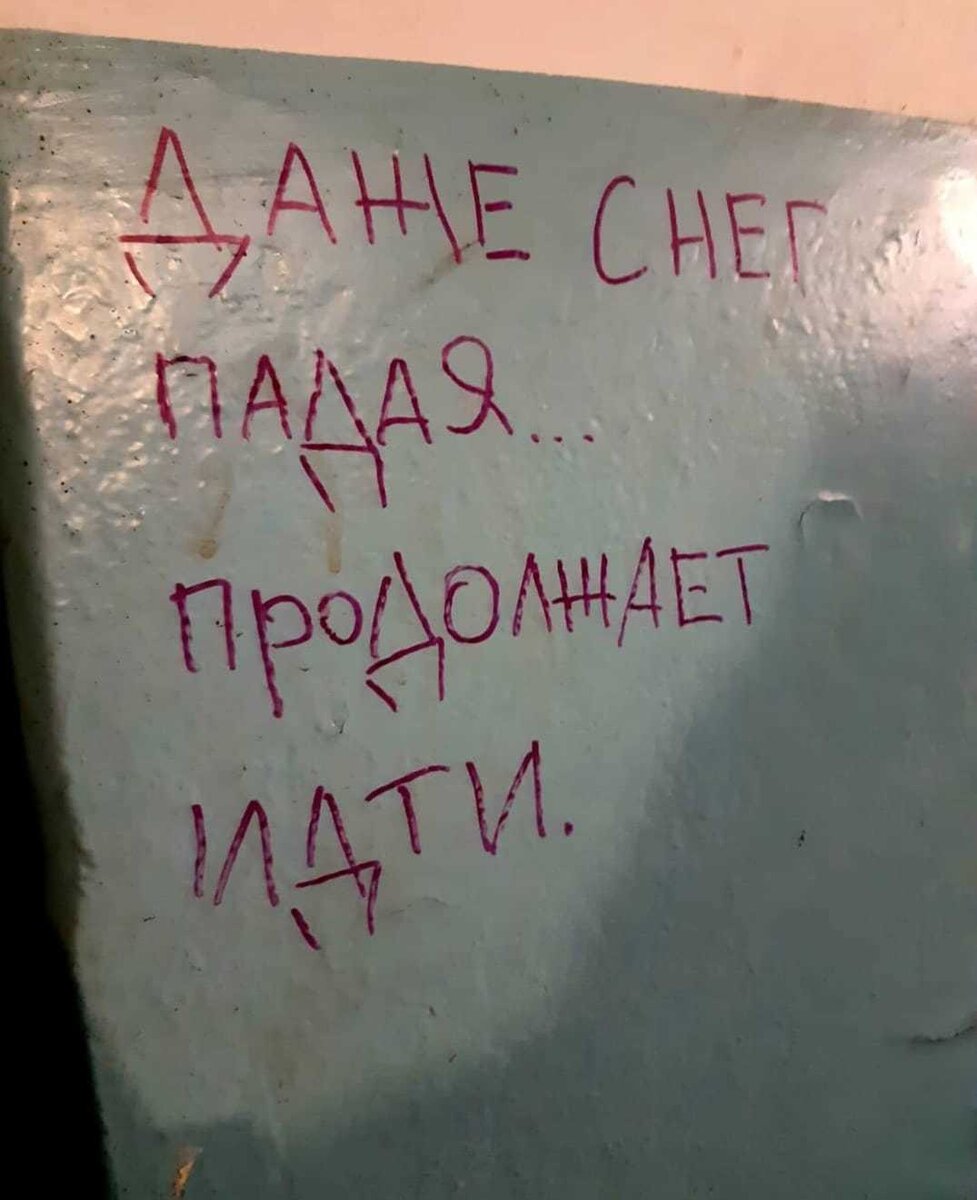 ДАЖЕ СНЕГ
ПАДАЯ...
ПРОДОЛЖАЕТ
ИДТИ.